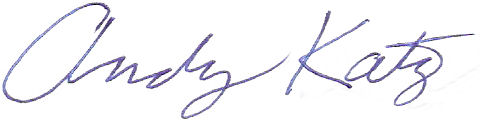 Andy Katz